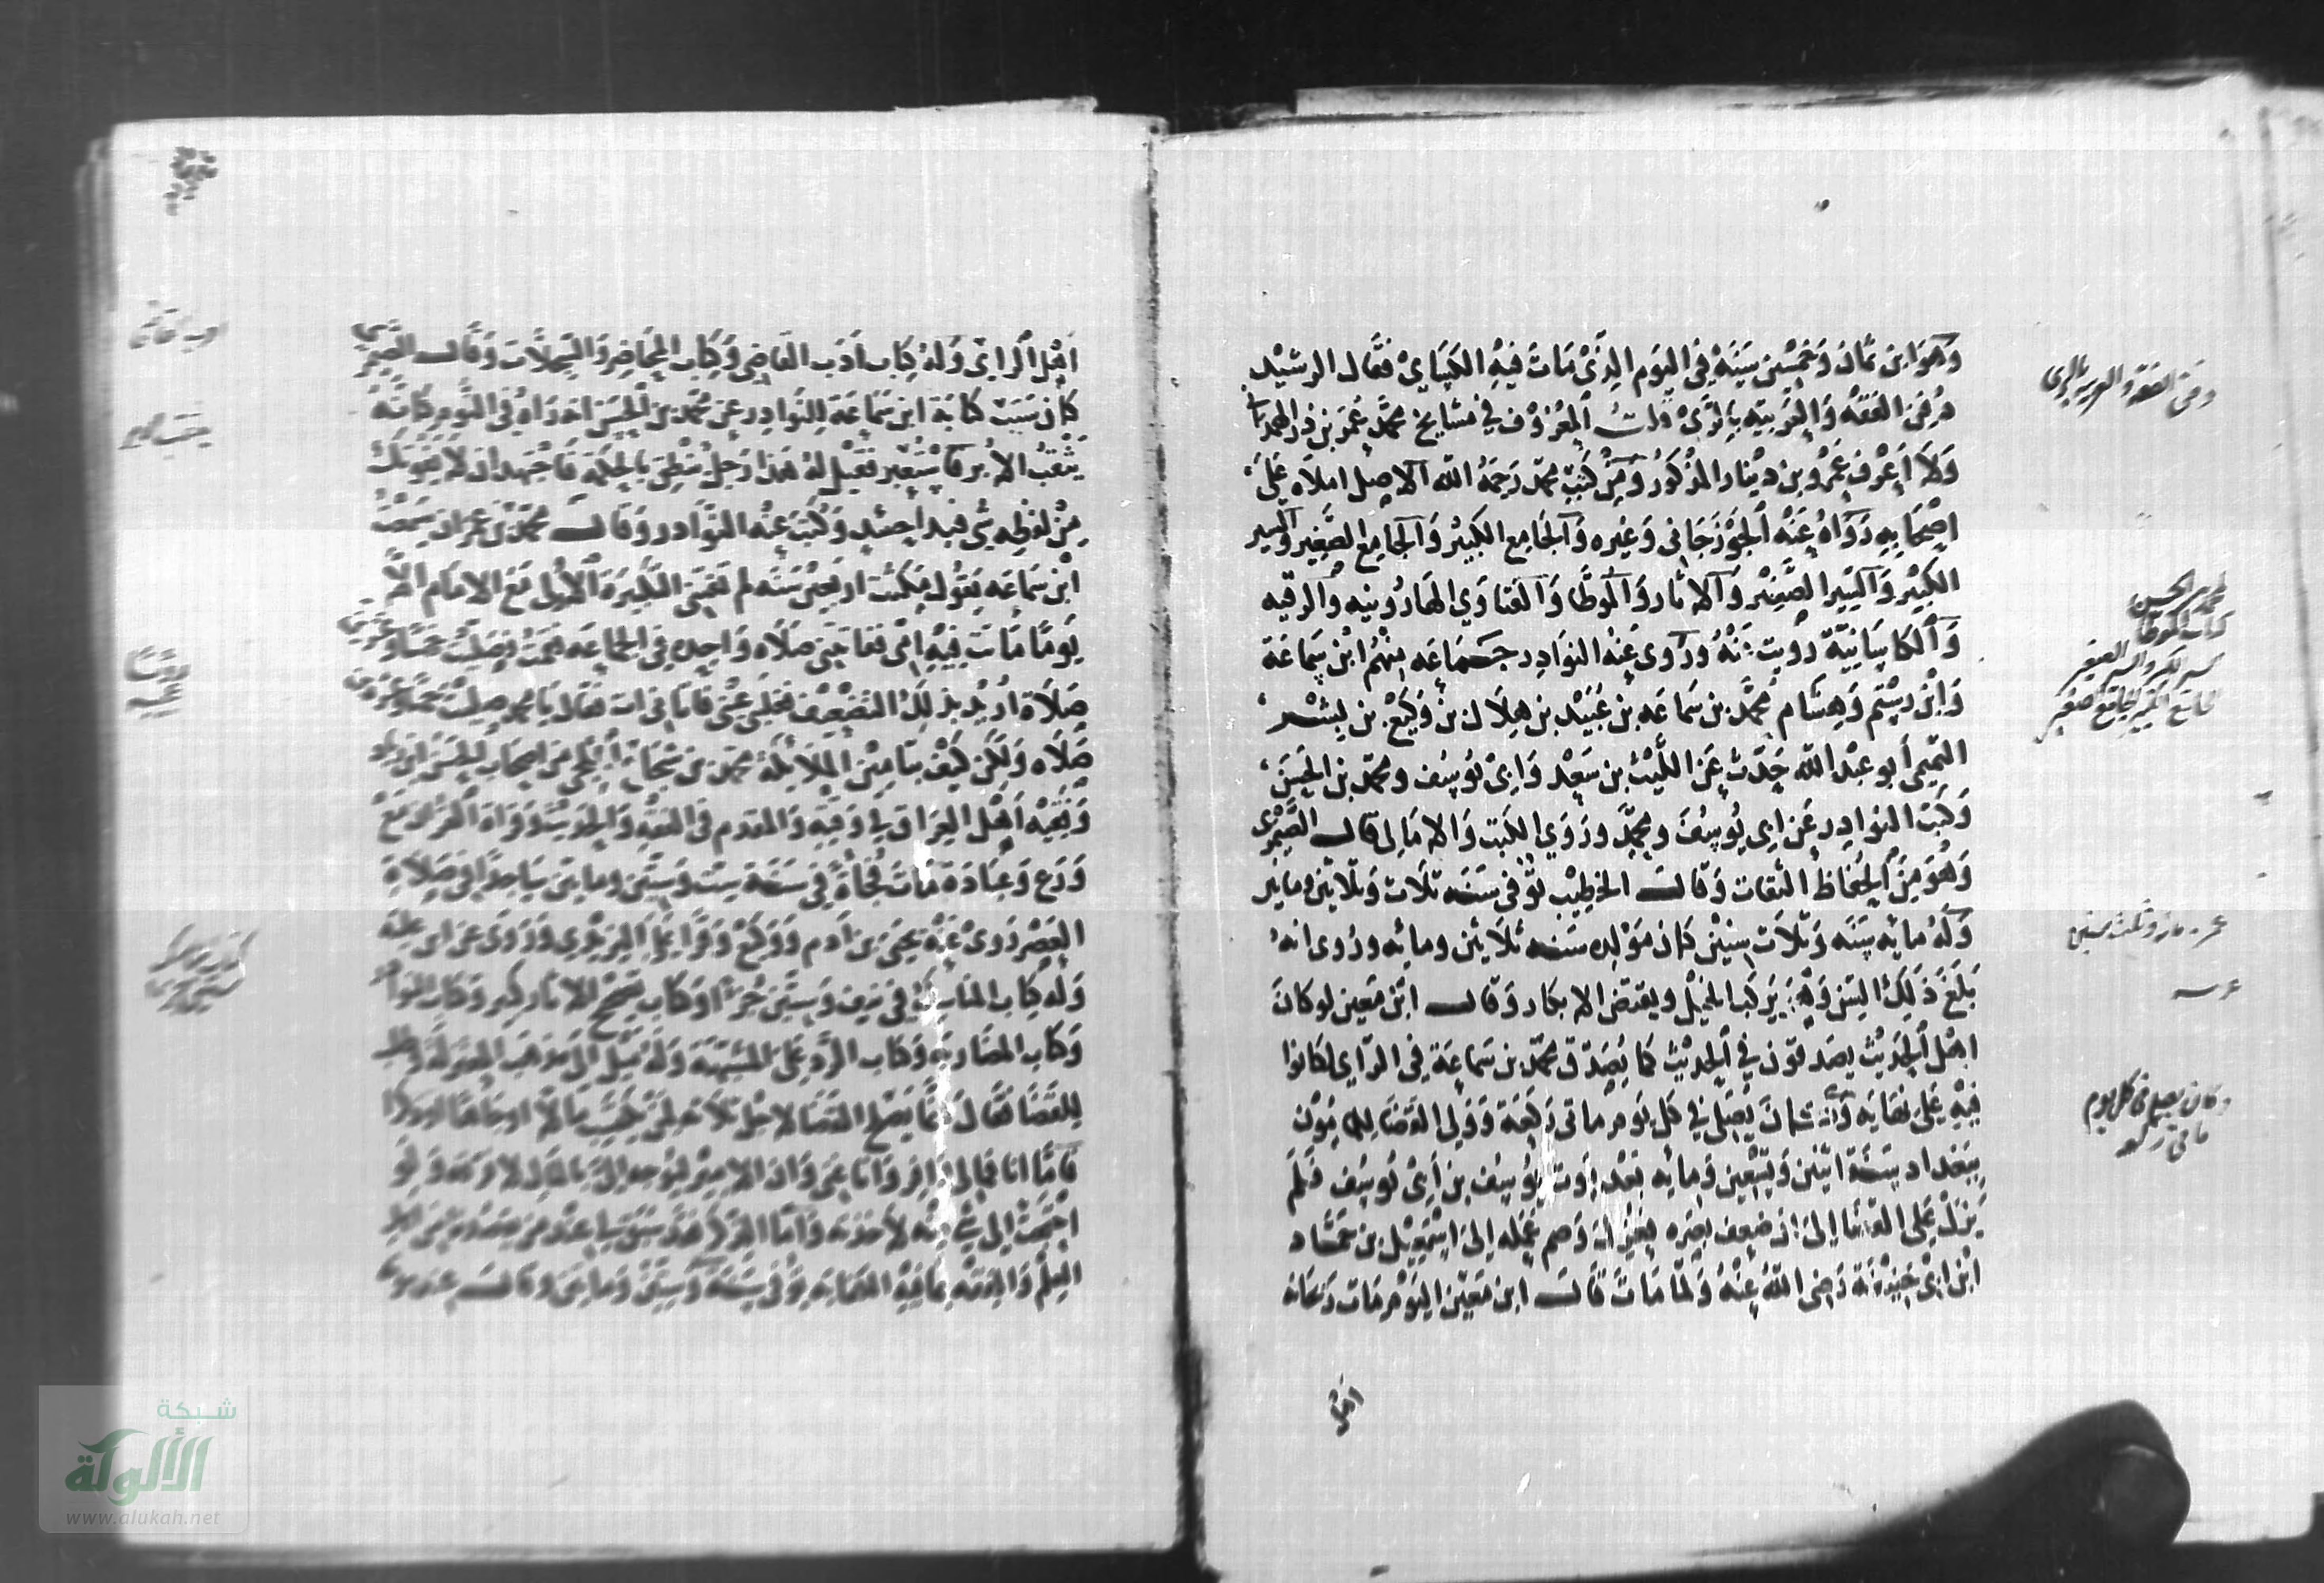 وهو ابن ثمان وخمسين سنة في اليوم الذي مات فيه الكسائي فقال الرشيد
دفن الفقه والعربية بالري قلت المعروف في مشايخ محمد عمر بن ذر الهمداني
ولا أعرف عمرو بن دينار المذكور ومن كتب محمد رحمه الله الاصل املاه على
اصحابه رواه عنه الجوزجاني وغيره والجامع الكبير والجامع الصغير والسير
الكبير والسير الصغير والاثار والموطا والفتاوي الهارونيه والرقيه
والكاسانية رويت عنه وروى عنه النوادر جماعه منهم ابن سماعة
وابن رستم وهشام محمد بن سماعه بن عبيد بن هلال بن وكيع بن بشر
التميمي أبو عبد الله حدث عن الليث بن سعد وابي يوسف ومحمد بن الحسن
وكتب النوادر عن ابي يوسف ومحمد وروي الكتب والامالي قال الصيمري
وهو من الحفاظ الثقات وقال الخطيب توفي سنه ثلاث وثلاثين ومايتين
وله مائه سنه وثلاث سنين كان مولده سنه ثلاثين ومائه وروى انه
بلغ ذلك السن وهو يركب الخيل ويفتض الابكار وقال ابن معين لو كان
اهل الحديث يصدقون في الحديث كما يصدق محمد بن سماعة في الراي لكانوا
فيه على نهايه وكان يصلي في كل يوم مائتي ركعة وولي القضا للمامون
ببغداد سنة اثنين وتسعين ومايه بعد موت يوسف بن أبي يوسف فلم
يزل على القضا إلى ان ضعف بصره فعزل وضم عمله إلى اسمعيل بن حماد
ابن ابي حنيفة رضي الله عنه ولما مات قال ابن معين اليوم مات ريحانة
اهل
دفن الفقه والعربية بالرى
محمد بن الحسن
كتاب الموطا
السير الكبير والسير الصغير
جامع الكبير الجامع الصغير
وكان يصلي في كل يوم
اهل الراي وله كتاب أدب القاضي وكتاب المحاضر والسجلات وقال الصيمري
كان سبب كتابة ابن سماعة للنوادر عن محمد بن الحسن انه راه في النوم كانه
يثقب الابر فاستعبر فقيل له هذا رجل ينطق بالحكمة فاجتهد ان لا يفوتك
من لفظه شي فبدا حينئذ وكتب عنه النوادر وقال محمد بن عمران سمعت
ابن سماعه يقول مكثت اربعين سنه لم تفتني التكبيرة الاولى مع الامام الا
يوما ماتت فيه امي ففاتتني صلاه واحده في الجماعه فقمت فصليت خمسا وعشرين
صلاة اريد بذلك التضعيف فغلبتني عيني فاتاني ات فقال يا محمد صليت خمسا وعشرين
صلاه ولكن كيف بتامين الملائكة محمد بن شجاع الثلجي من اصحاب الحسن ابن زياد
وفقيه أهل العراق في وقته والمقدم في الفقه والحديث وقراة القران مع
ورع وعبادة مات فجأة في سنة ست وستين ومايتين ساجدا في صلاة
العصر روى عنه يحيى بن ادم ووكيع وقرا على اليزيدي وروى عن ابن علية
وله كتاب المناسك في نيف وستين جزءا وكتاب تصحيح الاثار كبير وكتاب النوادر
وكتاب المضاربة وكتاب الرد على المشبهة وله ميل الى مذهب المعتزلة وطلب
للقضا فقال انما يصلح القضا لاحد ثلاثه لمن يكتسب مالا او جاها او ذكرا
فاما انا فمالي وافر وانا غني وان الامير ليوجه الي بالمال لافرقه ولو
احتجت إلى شي منه لاخذته واما الذكر فقد سبق لي عند من يقصدني من اهل
العلم والفقه بما فيه الكفايه توفي سنة وستين ومايتين وقال